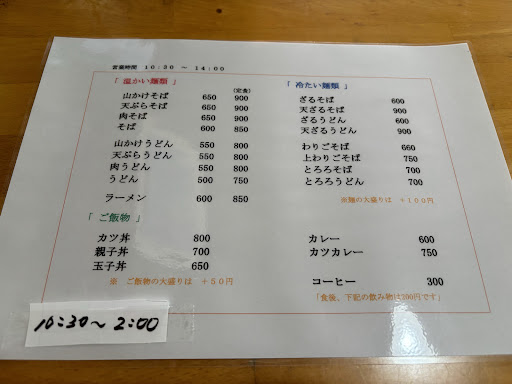 営業時間 10:30 ～ 14:00
「 温かい麺類 」
(定食)
山かけそば 650 900
天ぷらそば 650 900
肉そば 650 900
そば 600 850
山かけうどん 550 800
天ぷらうどん 550 800
肉うどん 550 800
うどん 500 750
ラーメン 600 850
「 ご飯物 」
カツ丼 800
親子丼 700
玉子丼 650
※ ご飯物の大盛りは ＋50円
「 冷たい麺類 」
ざるそば 600
天ざるそば 900
ざるうどん 600
天ざるうどん 900
わりごそば 660
上わりごそば 750
とろろそば 700
とろろうどん 700
※麺の大盛りは ＋100円
カレー 600
カツカレー 750
コーヒー 300
「食後、下記の飲み物は200円です」
10:30～2:00